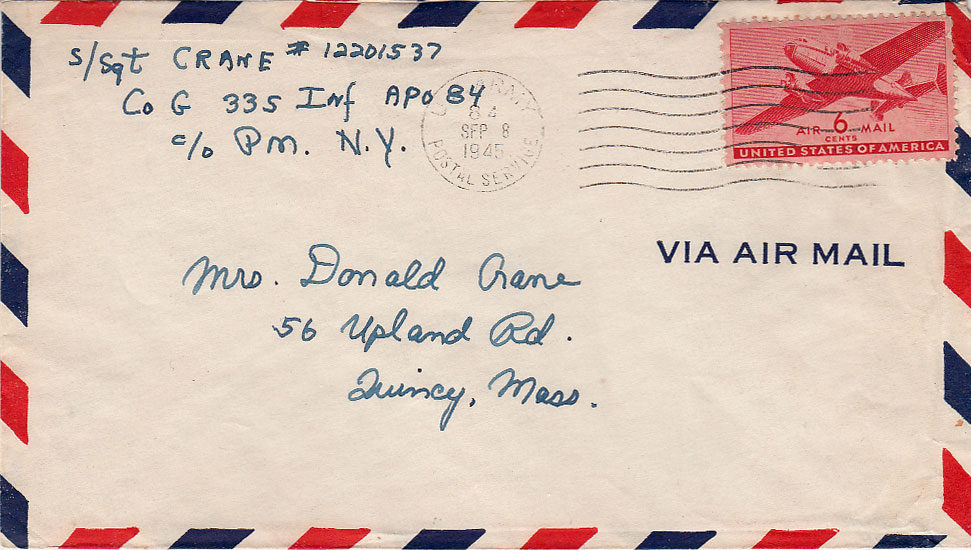 S/Sgt CRANE # 12201537
Co G 335 Inf APO 84
c/o PM. N.Y.
U.S. ARMY
84
SEP 8
1945
POSTAL SERVICE
AIR 6 MAIL
CENTS
UNITED STATES OF AMERICA
VIA AIR MAIL
Mrs. Donald Crane
56 Upland Rd.
Quincy, Mass.